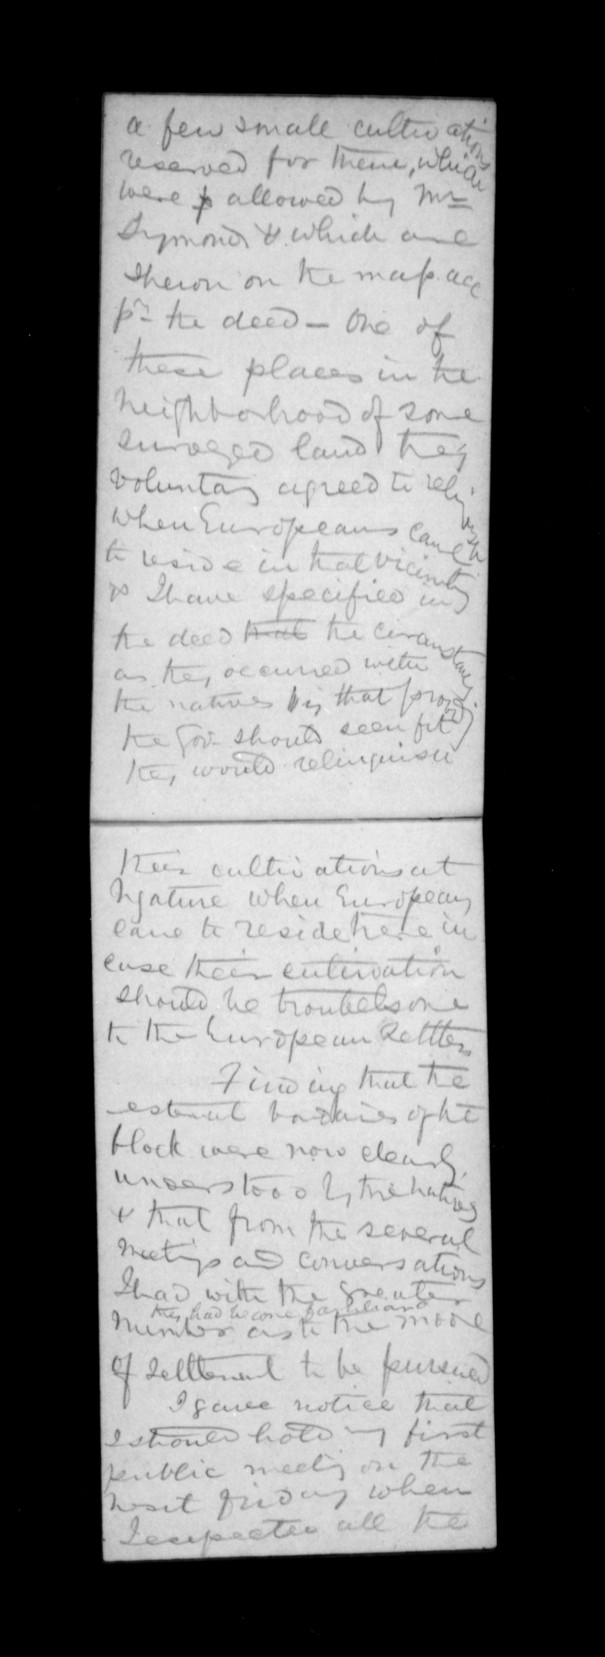 a few small cultivations
reserved for them, which
were allowed by Mr
Symonds & which are
shewn on the map acc
pg the deed — One of
these places in the
neighborhood of some
surveyed land they
voluntary agreed to relinquish
when Europeans came
to reside in that vicinity
& I have specified in
the deed that the circumstances
as they occurred with
the natives that provd
the Gov. should seen fit
they would relinquish
their cultivations at
Ngature when Europeans
came to reside there in
case their cultivation
should be troublesome
to the European Settlers
Finding that the
external boundaries of the
block were now clearly
understood by the natives
& that from the several
meetings and conversations
I had with the greater
they had become familiar
number as to the mode
of settlement to be pursued
I gave notice that
I should hold my first
public meeting on the
next friday when
I expected all the